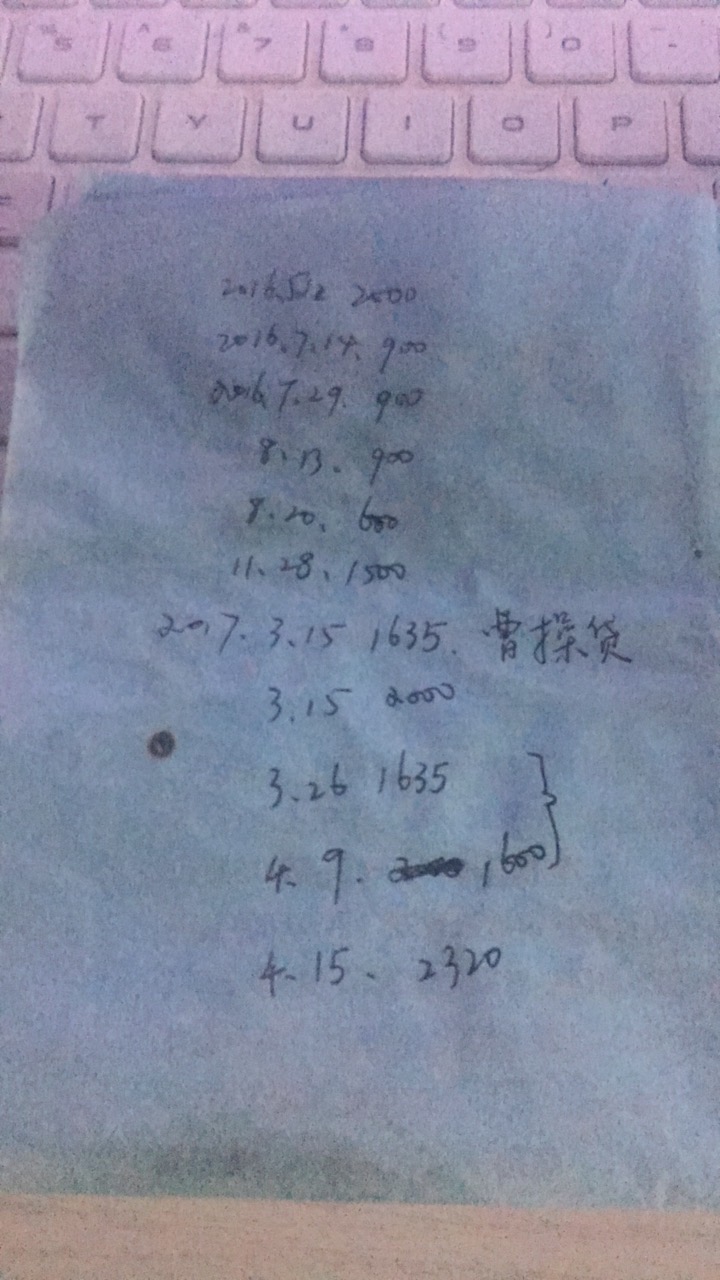 5 6 7 8 9 0 -
T Y U I O P
2016.5.12 2500
2016.7.14. 900
2016.7.29. 900
8.13. 900
8.20. 600
11.28. 1500
2017.3.15 1635. 曹操贷
3.15 2000
3.26 1635
4.9. 1600
4.15. 2320